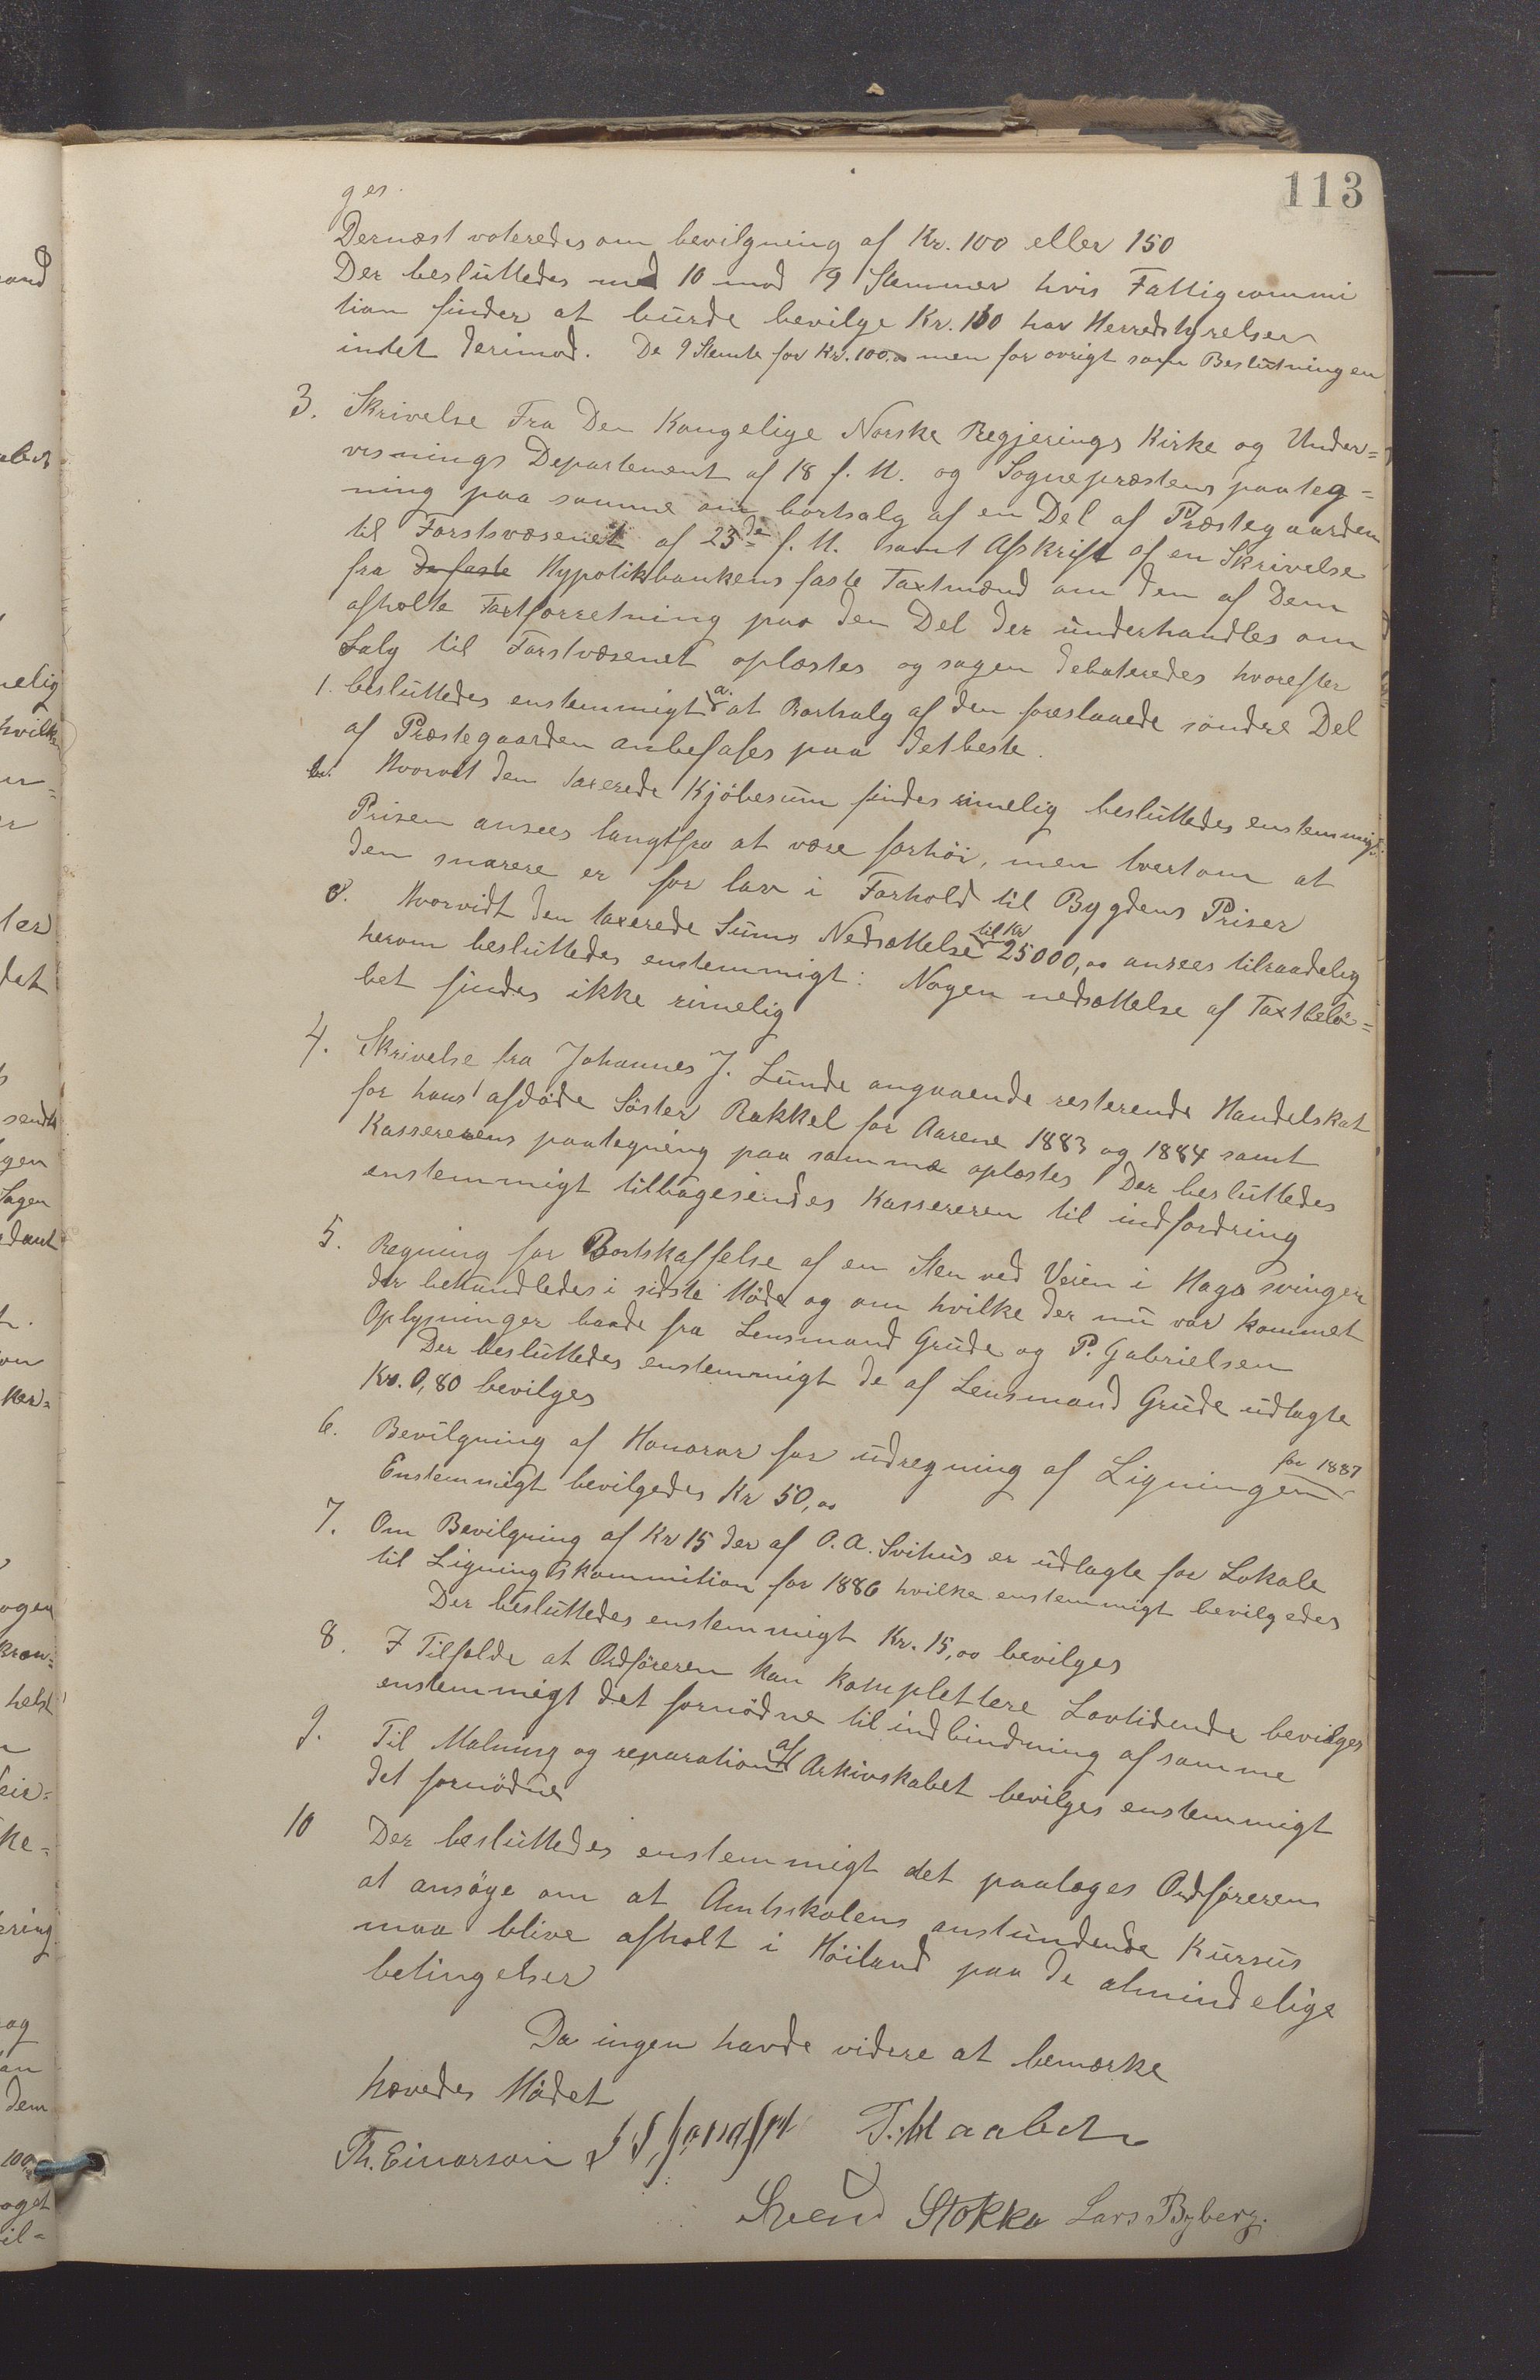 113
ges.
Dernæst voteredes om bevilgning af Kr. 100 eller 150
Der besluttedes med 10 mod 9 Stemmer hvis Fattigcommi
tion finder at burde bevilge Kr. 150 har Herredstyrelsen
intet derimod. De 9 Stemte for Kr. 100,00 men for øvrigt som Beslutningen
3. Skrivelse Fra Den Kongelige Norske Regjerings Kirke og Under=
visnings Departement af 18 f. M. og Sognepræstens paateg=
ning paa samme om bortsalg af en Del af Præstegaarden
til Forstvæsenet af 23de f. M. samt Afskrift af en Skrivelse
fra De faste Hypotikbankens faste Taxtmænd om den af Dem
afholte Taxtforretning paa den Del der underhandles om
Salg til Forstvæsenet oplæstes og sagen debateredes hvorefter
1. besluttedes enstemmigt a. at Bortsalg af den foreslaaede søndre Del
af Præstegaarden anbefales paa det beste.
b. Hvorvit den taxerede Kjöbesum findes rimelig besluttedes enstemmigt:
Prisen ansees langtfra at være forhöi, men tvertom at
den snarere er for lav i Forhold til Bygdens Priser
c. Hvorvidt den taxerede Sums Nedsættelse til Kr 25000,00 ansees tilraadelig
herom besluttedes enstemmigt: Nogen nedsættelse af Taxtbelö=
bet findes ikke rimelig
4. Skrivelse fra Johannes J. Lunde angaaende resterende Handelskat
for hans afdöde Söster Rakkel for Aarene 1883 og 1884 samt
Kassererens paategning paa samme oplæstes Der besluttedes
enstemmigt tilbagesendes Kassereren til indfordring
5. Regning for Bortskaffelse af en Sten ved Veien i Haga svingen
der behandledes i sidste Möde og om hvilke der nu var kommet
Oplysninger baade fra Lensmand Grude og P. Gabrielsen
Der besluttedes enstemmigt de af Lensmand Grude udlagte
Kr. 0,80 bevilges
6. Bevilgning af Honorar for udregning af Ligningen for 1887
Enstemmigt bevilgedes Kr 50,00
7. Om Bevilgning af Kr 15 der af O. A. Svihus er udlagte for Lokale
til Ligningskommition for 1886 hvilke enstemmigt bevilgedes
Der besluttedes enstemmigt Kr. 15,00 bevilges
8. I Tilfælde at Ordföreren kan komplettere Lovtidende bevilges
enstemmigt det fornödne til indbindning af samme
9. Til Malning og reparation af Arkivskabet bevilges enstemmigt
det fornödne
10 Der besluttedes enstemmigt det paalæges Ordföreren
at ansöge om at Amtsskolens anstundende Kursus
maa blive afholt i Höiland paa de almindelige
betingelser
Da ingen havde videre at bemærke
hævedes Mödet
Th. Einarson T. Maabek
Svend Stokka Lars Byberg.